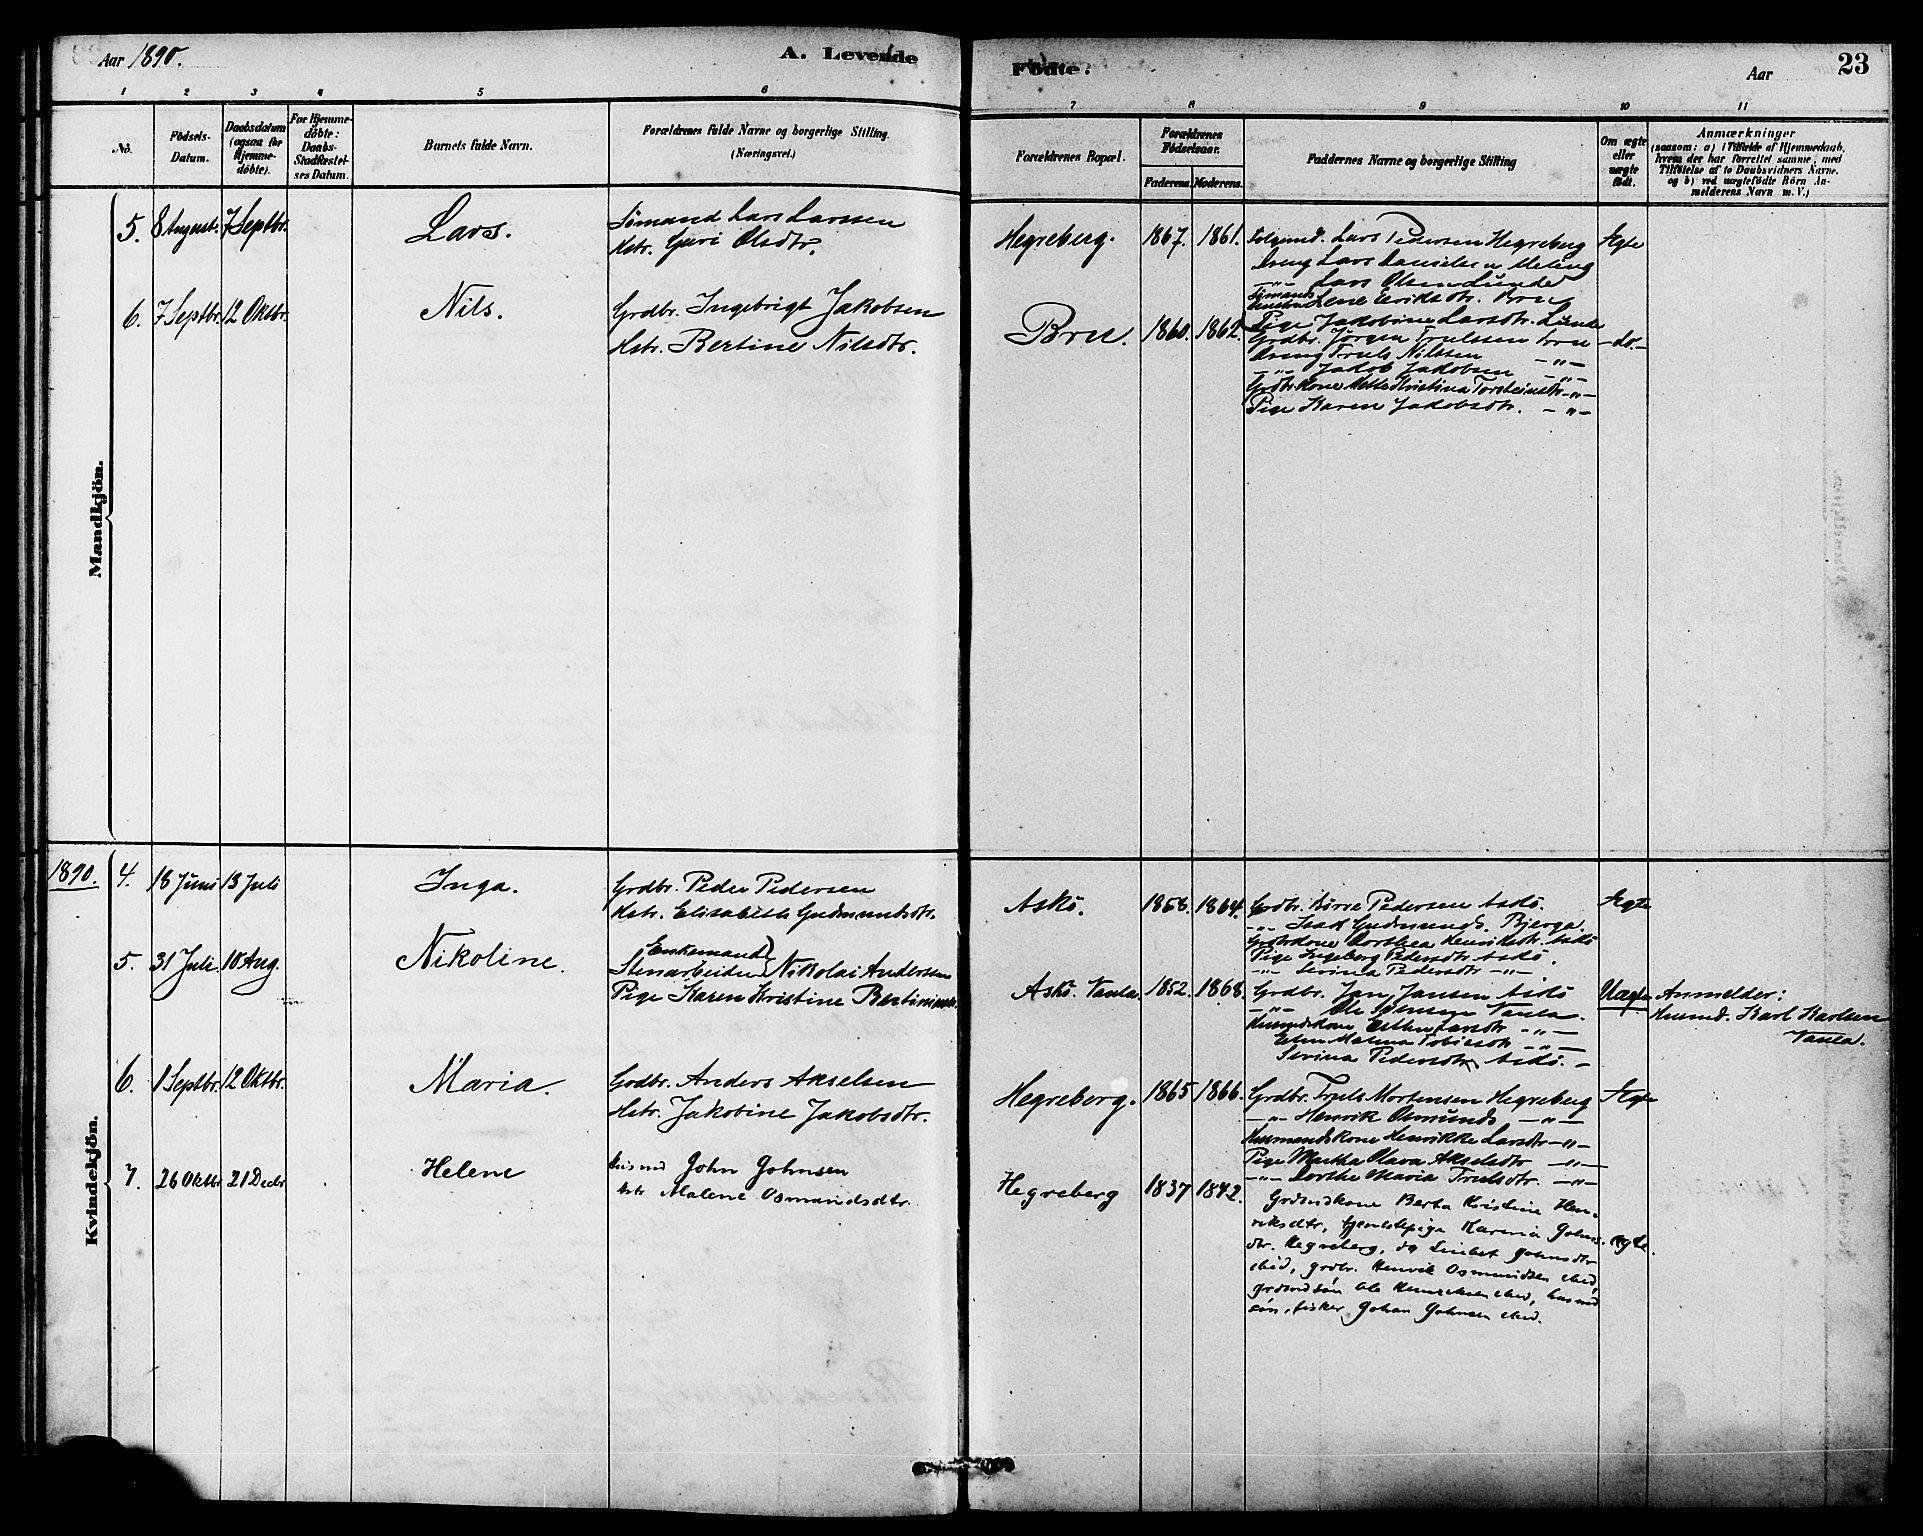 Aar 1890.
A. Levende
Födte.
Aar
23
1 2 3 4 5 6
7 8 9 10 11
No.
Födsels-Datum.
Daabsdatum (ogsaa for Hjemme-döbte).
For Hjemme-döbte: Daabs-Stadfæstel-ses Datum.
Barnets fulde Navn.
Forældrenes fulde Navne og borgerlige Stilling.
(Næringsvei.)
Forældrenes Bopæl.
Forældrenes Födselsaar.
Faderens. Moderens.
Faddernes Navne og borgerlige Stilling
Om ægte eller uægte födt.
Anmærkninger
(saasom: a) i Tilfælde af Hjemmedaab,
hvem der har forrettet samme, med
Tilföielse af to Daabsvidners Navne,
og b) ved uægtefödte Börn An-
melderens Navn m. V.)
Mandkjön.
5. 8 August. 7 Septbr. Lars. Sömand Lars Larssen
Hstr. Guri Olsdtr.
Hegreberg. 1867. 1861. Lars Pedersen Hegreberg Ægte
Dreng Lars Danielsen Meling
-"- Lars Olsen Lunde
Sömands Lene Eriksdtr. Bru
Pige Jakobine Larsdtr. Lunde
6. 7 Septbr. 12 Oktbr. Nils. Grdbr. Ingebrigt Jakobsen
Hstr. Bertine Nilsdtr.
Bru. 1860. 1862. Grdbr. Jörgen Trulssen Bru -do.-
Dreng Truls Nilssen -"-
-"- Jakob Jakobsen -"-
Grdbrkone Mette Kristina Torsteinsdtr -"-
Pige Karen Jakobsdtr. -"-
Kvindekjön.
1890. 4. 18 Juni 13 Juli Inga. Grdbr. Peder Pedersen
Hstr. Elisabeth Gudmundsdtr.
Askö. 1858. 1864. Grdbr. Börre Pedersen Askö. Ægte
-"- Isak Gudmunds. Bjerga.
Grdbrkone Dorthea Henriksdtr. Askö
Pige Ingeborg Pedersdtr Askö.
-"- Sevina Pedersdtr -"-
5. 31 Juli 10 Aug. Nikoline. Enkemand
Stenarbeider Nikolai Andersen
Pige Karen Kristine
Askö. Vaula. 1852. 1868. Grdbr. Jan Jansen Askö Uægte Anmelder:
-"- Ole Vaula. Husmd. Karl Karlsen
Husmdskone -"- Vaula.
Malena Tobiasdtr -"-
Sevina Pedersdtr, Askö.
6. 1 Septbr. 12 Oktbr. Maria. Grdbr. Anders Akselsen
Hstr. Jakobine Jakobsdtr.
Hegreberg. 1865 1866. Grdbr. Truls Mortensen Hegreberg Ægte
-"- Henrik Osmunds -"-
Husmandskone Henrikke Larsdtr -"-
Pige Martha Olava Akselsdtr -"-
-"- Dorthe Maria Trulsdtr. -"-
7. 26 Oktbr 21 Decbr Helene Husmd John Johnsen
Hstr Malene Osmundsdtr.
Hegreberg 1837 1842. Grdmdskone Berta Kristine Hen-
riksdtr, tjenestepige Karina Johns- ægte.
dtr. Hegreberg, do Johnsdtr
ibid, grdbr. Henrik Osmundsen ibid,
grdmdsön Ole Henriksen ibid, husmd
sön, fisker Johan Johnsen ibid.